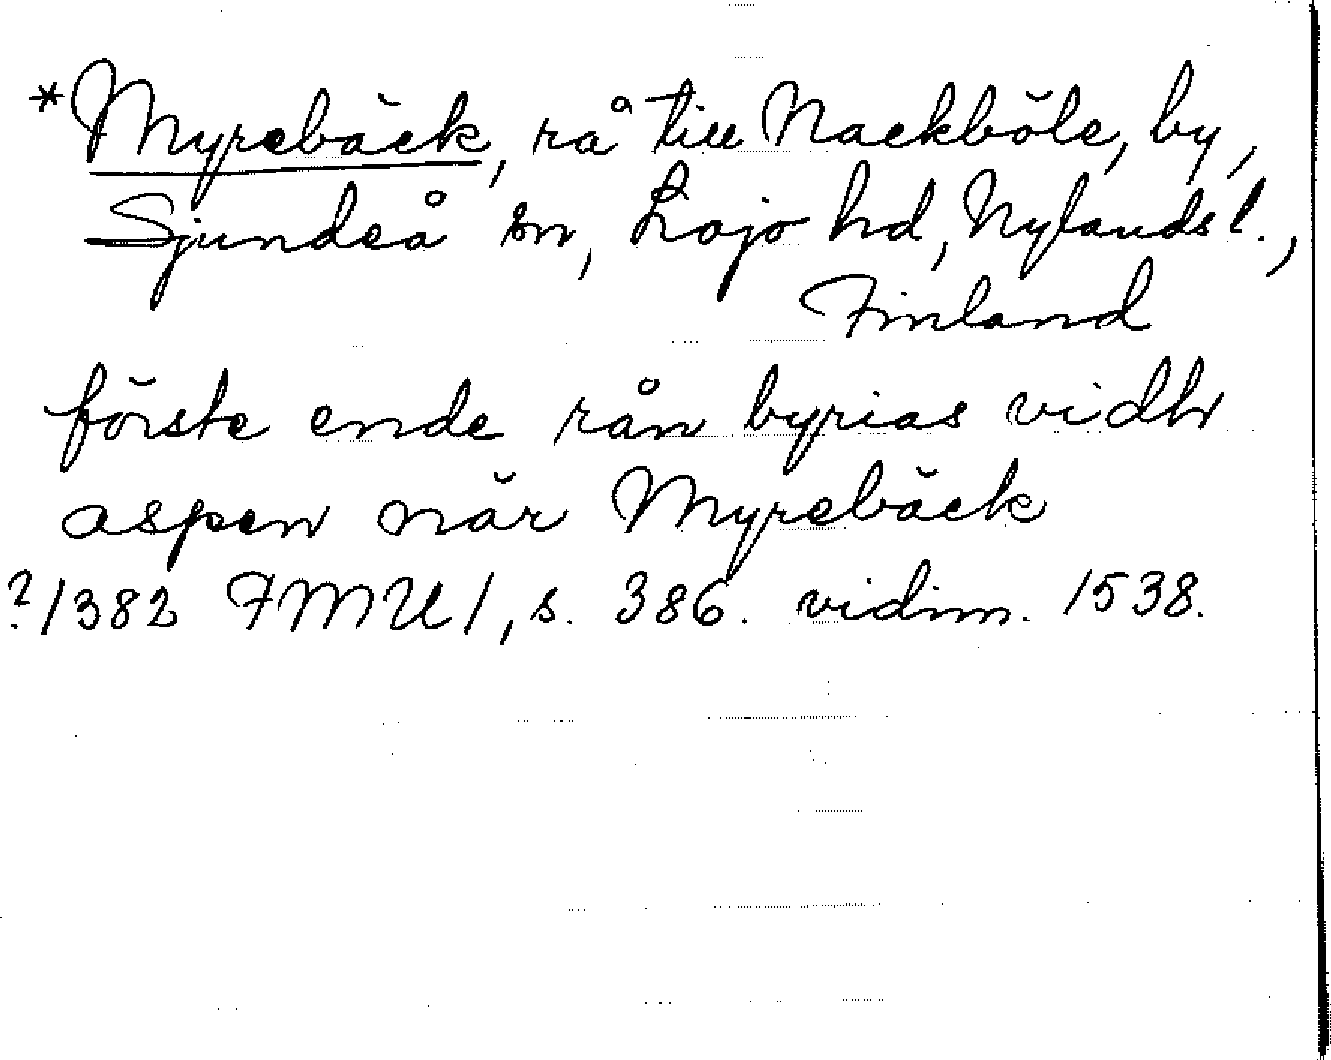 *Myrebäck, rå till Nackböle, by,
Sjundeå sn, Lojo hd, Nylands l.,
Finland
förste ende rån byrias vidh
aspen når Myrebäck
?1382 FMU1, s. 386. vidim. 1538.